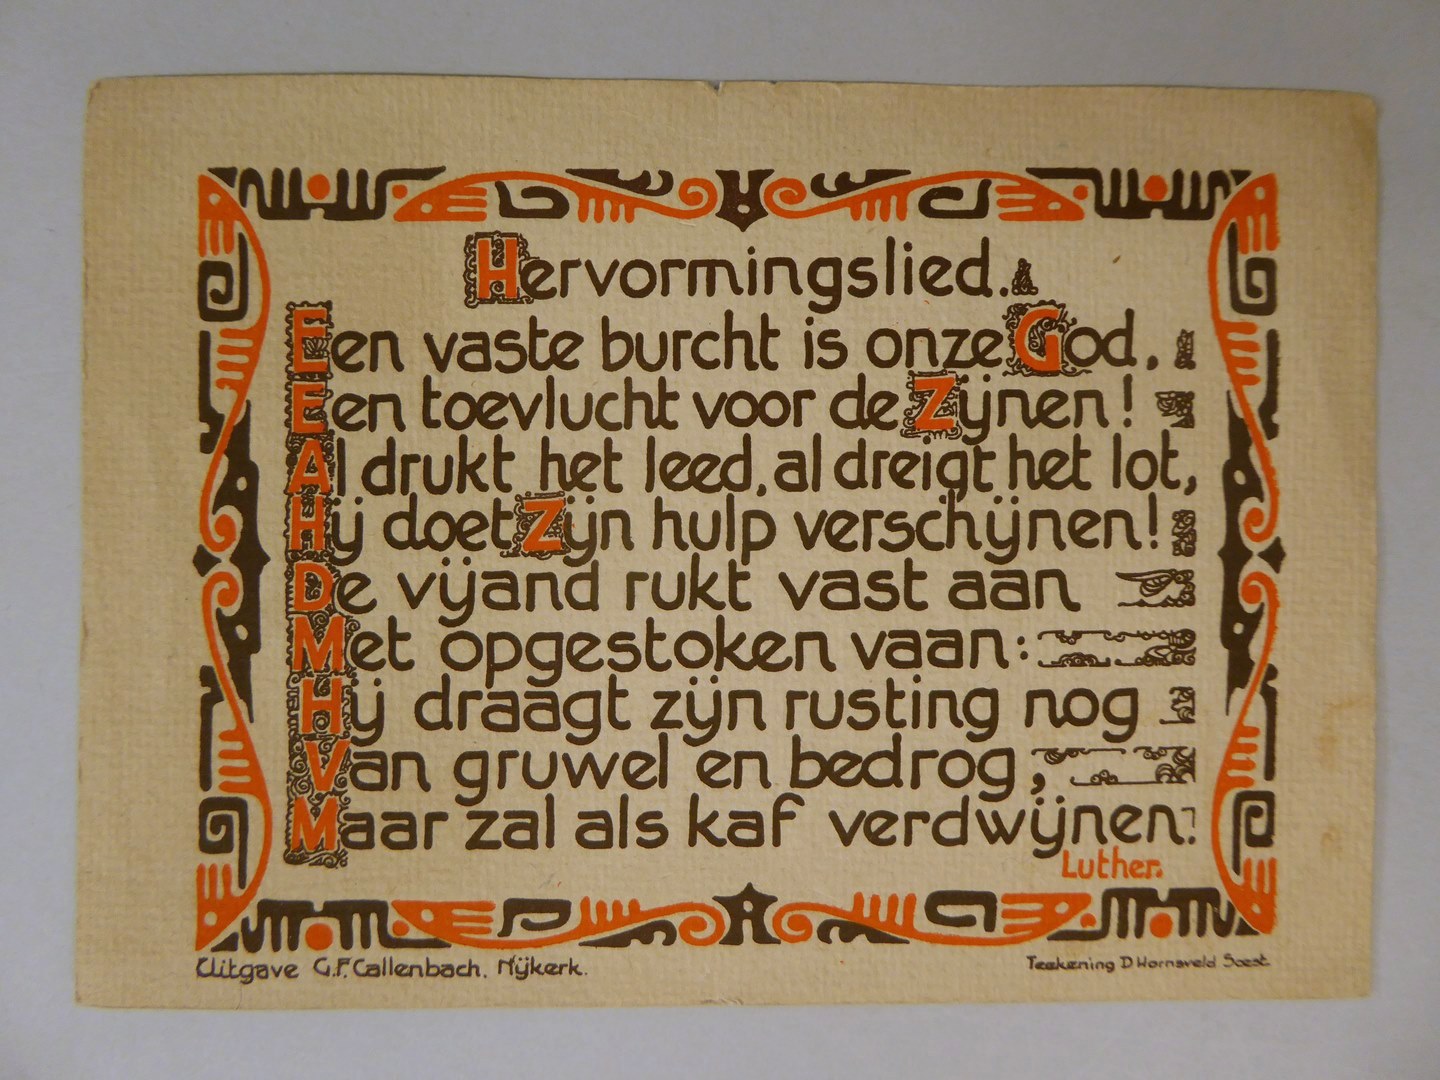 Hervormingslied.
Een vaste burcht is onze God,
Een toevlucht voor de Zijnen!
Al drukt het leed, al dreigt het lot,
Hij doet Zijn hulp verschijnen!
De vijand rukt vast aan
Met opgestoken vaan:
Hij draagt zijn rusting nog
Van gruwel en bedrog,
Maar zal als kaf verdwijnen.
Luther.
Uitgave G.F. Callenbach. Nijkerk.
Teekening D Hornsveld Soest